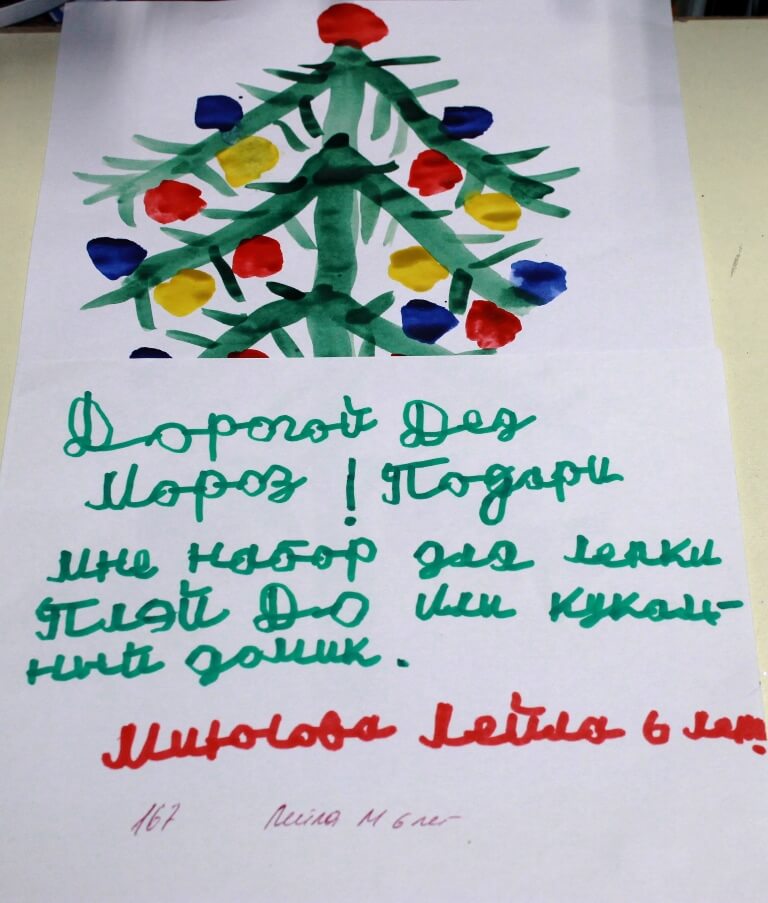 Дорогой Дед
Мороз! Подари
мне набор для лепки
Плэй До или куколь-
ный домик.
Лейла 6 лет
167 Лейла М 6 лет